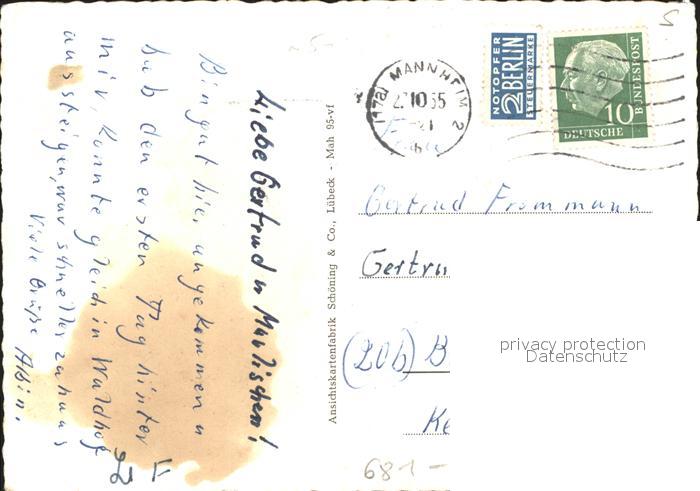 Liebe Gertrud u Mutischen!
Bin gut hier angekommen u
hab den ersten Tag hinter
mir, konnte gleich in Waldhof
aussteigen, war schneller zuhaus
Viele Grüße Albin.
Ansichtskartenfabrik Schöning & Co., Lübeck - Mah 95-vf
(17a) MANNHEIM 2
2.10.55
-21
NOTOPFER
2 BERLIN
STEUERMARKE
10
DEUTSCHE
BUNDESPOST
Frau
Gertrud Frommann
Gertru
(20b) B
Ke
681-
privacy protection
Datenschutz